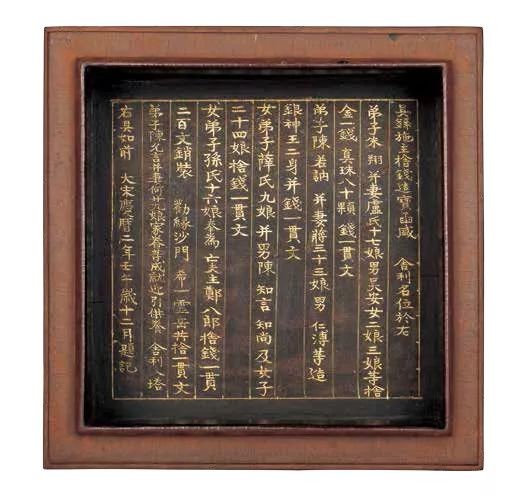 具錄施主捨錢造寶函盛　舍利名位於左
弟子朱翔并妻盧氏十七娘男吴安女二娘三娘等捨
金一錢真珠八十顆錢一貫文
弟子陳若訥并妻蔣三十三娘男仁溥等造
銀神王二身并錢一貫文
女弟子薛氏九娘并男陳知言知尚及女子
二十四娘捨錢一貫文
女弟子孫氏十六娘奉為亡夫主鄭八郎捨錢一貫
二百文銷裝　勸緣沙門希一雲岳共捨一貫文
弟子陳允言并妻何廿九娘家眷等成就迎引供養舍利入塔
右具如前　大宋慶曆二年壬午歲十二月題記